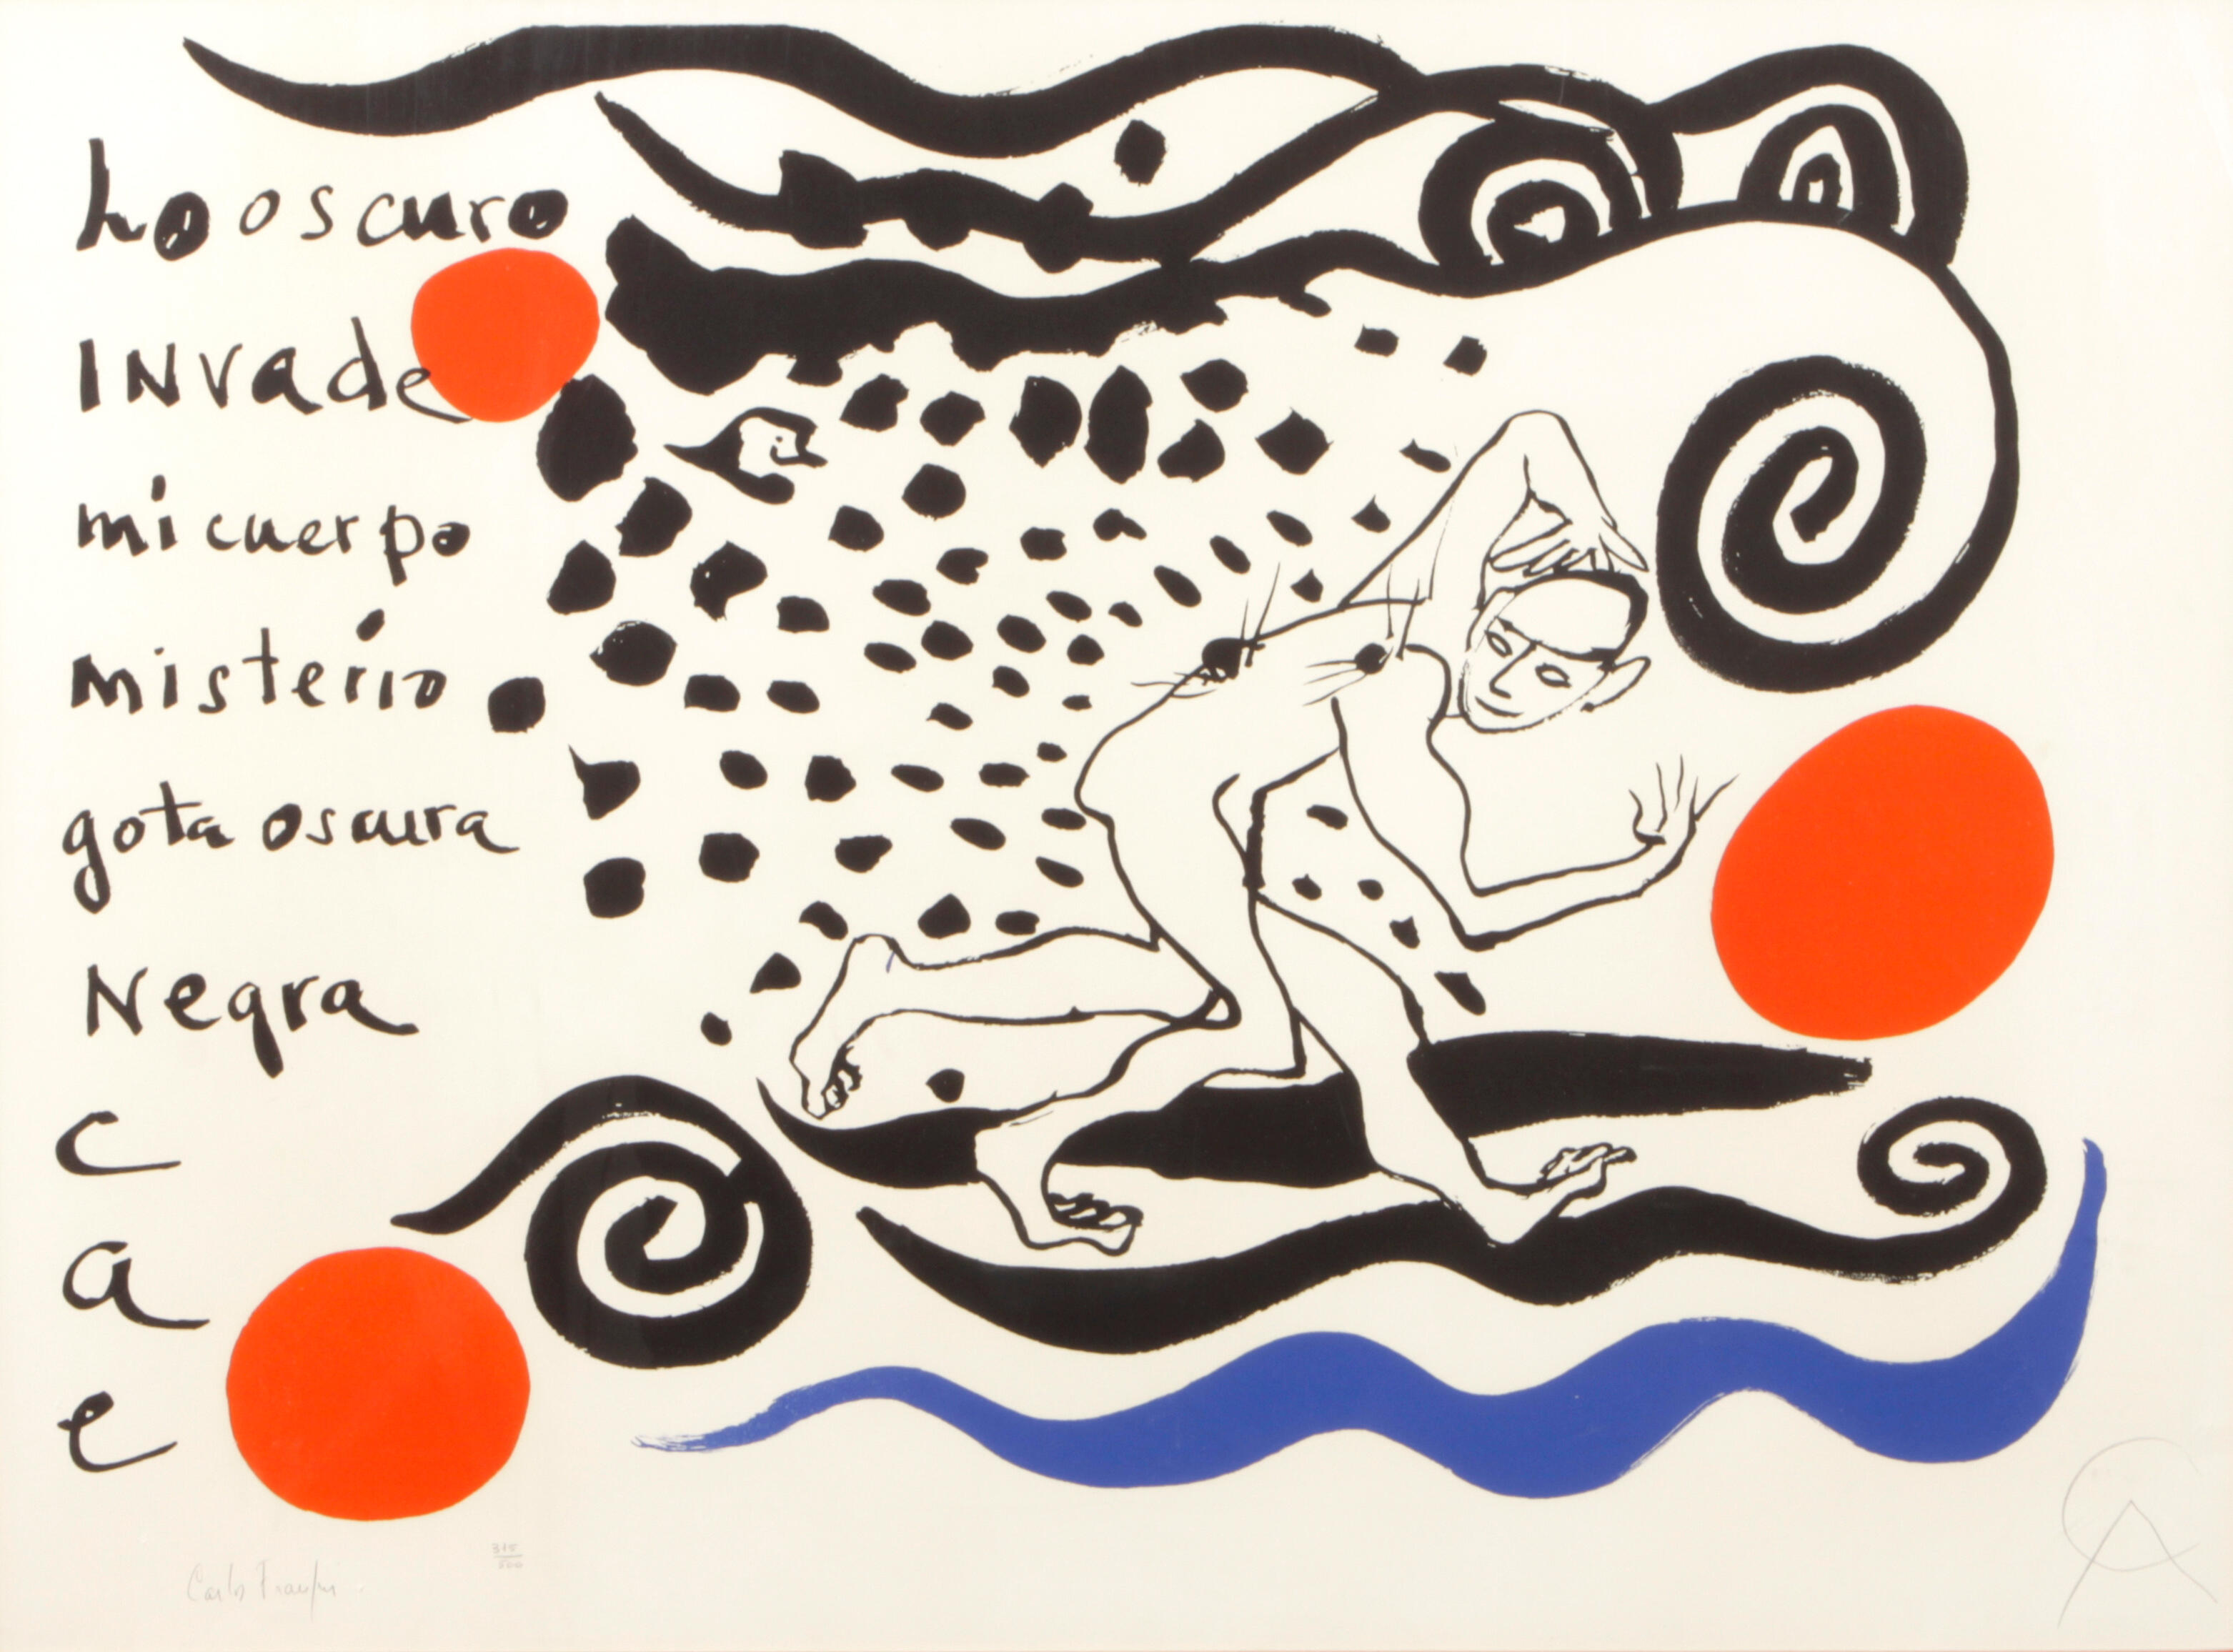 Lo oscuro
INvade
mi cuerpo
misterio
gota oscura
Negra
c
a
e
Carlos Franqui
315/500
CA